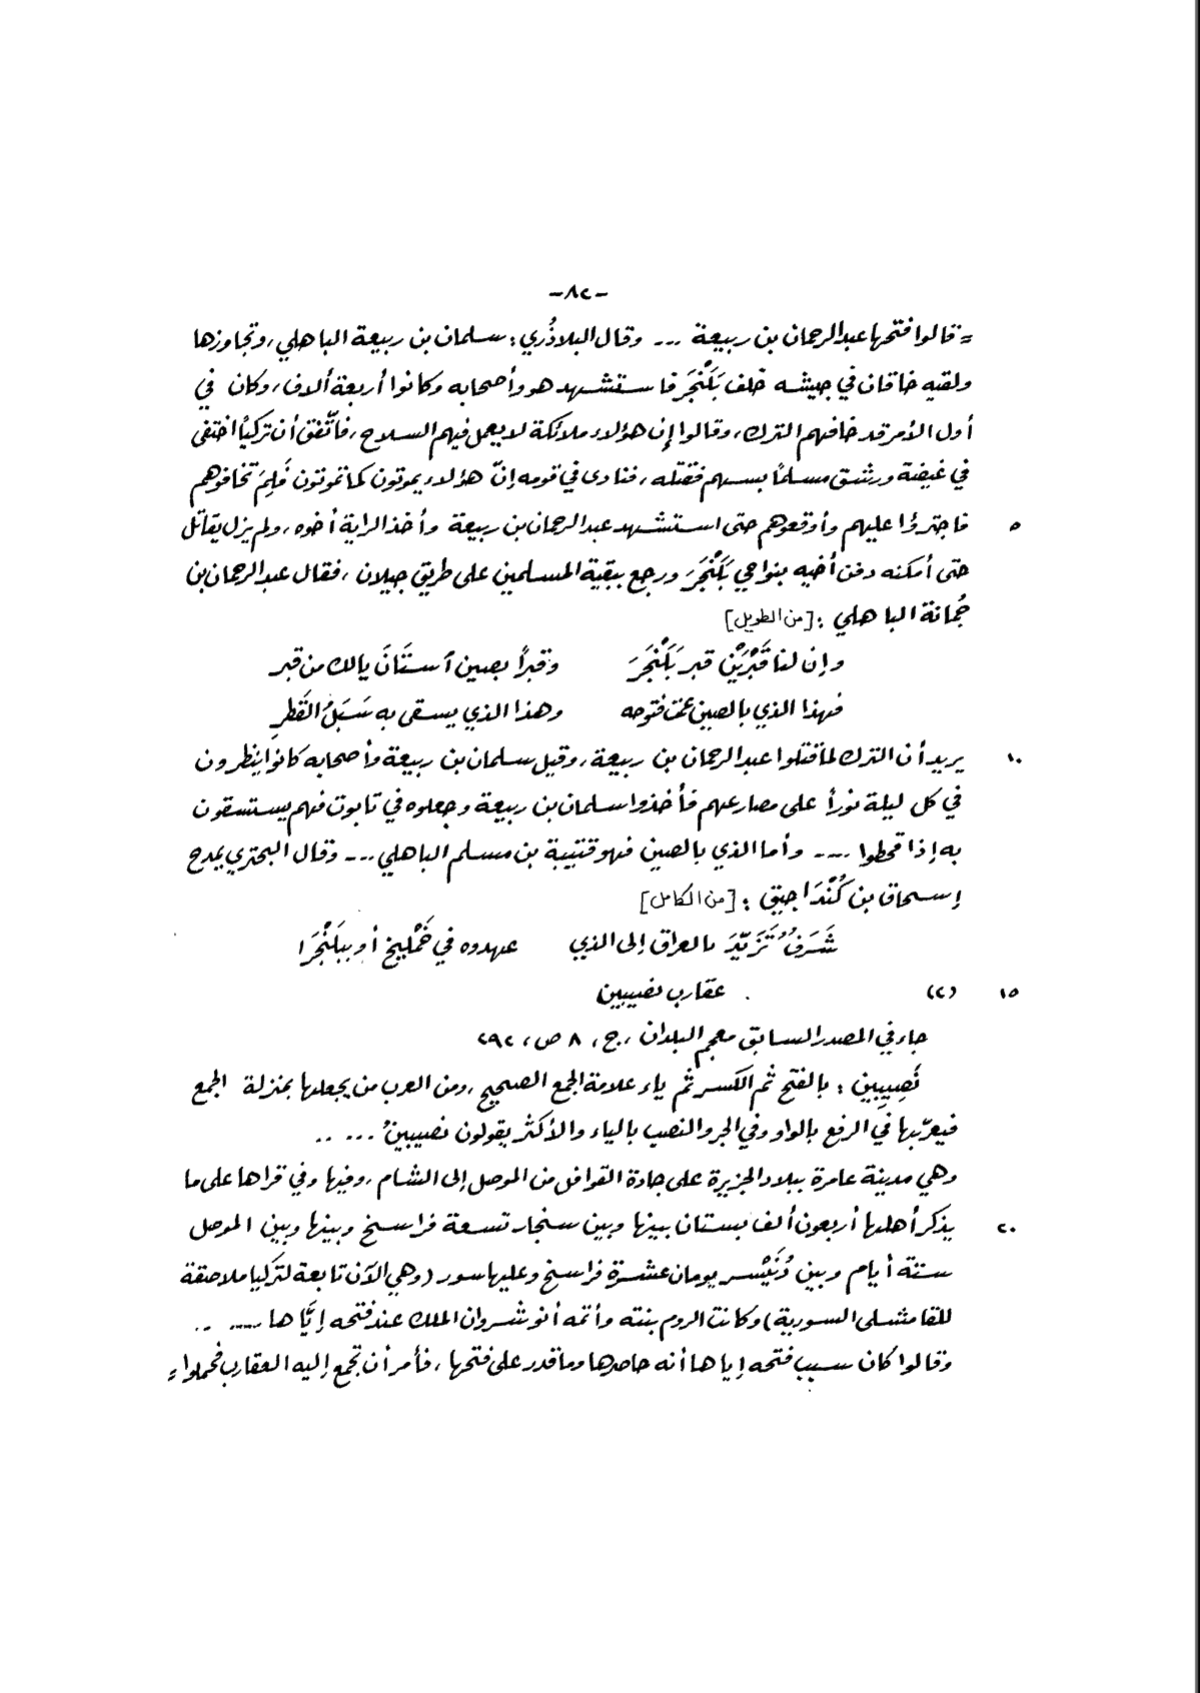 -٨٢-
= قالوا فتحها عبد الرحمان بن ربيعة ... وقال البلاذُري: سلمان بن ربيعة الباهلي، وتجاوزها
ولقيه خاقان في جيشه خلف بَلَنْجَرَ فاستشهد هو وأصحابه وكانوا أربعة ألاف، وكان في
أول الأمر قد خافهم الترك، وقالوا إن هؤلاء ملائكة لا يعمل فيهم السلاح، فاتّفق أن تركيًا اختفى
في غيضة ورشق مسلمًا بسهم فقتله، فنادى في قومه إنّ هؤلاء يموتون كما تموتون فَلِمَ تخافوهم
٥ فاجترؤا عليهم وأوقعوهم حتى استشهد عبد الرحمان بن ربيعة وأخذ الراية أخوه، ولم يزل يقاتل
حتى أمكنه دفن أخيه بنواحي بَلَنْجَرَ ورجع ببقية المسلمين على طريق جيلان، فقال عبد الرحمان بن
جُمانة الباهلي: [من الطويل]
وإن لنا قَبْرَيْن قبر بَلَنْجَرَ وقبرًا بصين آستَنَانَ يالك من قبر
فهذا الذي بالصين عمّت فتوحه وهذا الذي يسقى به سَبَلُ القَطرِ
١٠ يريد أن الترك لما قتلوا عبد الرحمان بن ربيعة، وقيل سلمان بن ربيعة وأصحابه كانوا ينظرون
في كل ليلة نورًا على مصارعهم فأخذوا سلمان بن ربيعة وجعلوه في تابوت فهم يستسقون
به إذا قحطوا .... وأما الذي بالصين فهو قتيبة بن مسلم الباهلي ... وقال البحتري يمدح
إسحاق بن كُنْدَاجيق: [من الكامل]
شَرَفٌ تَزَيّدَ بالعراق إلى الذي عهدوه في خَمْليخ أو ببَلَنْجَرَا
١٥ (٢) عقارب نصيبين
جاء في المصدر السابق معجم البلدان، ج، ٨ ص، ٢٩٢
نَصِيبِين: بالفتح ثم الكسر ثم ياء علامة الجمع الصحيح، ومن العرب من يجعلها بمنزلة الجمع
فيعرّبها في الرفع بالواو وفي الجر والنصب بالياء والأكثر يقولون نصيبينُ .....
وهي مدينة عامرة ببلاد الجزيرة على جادة القوافل من الموصل إلى الشام، وفيها وفي قراها على ما
٢٠ يذكر أهلها أربعون ألف بستان بينها وبين سنجار تسعة فراسخ وبينها وبين الموصل
ستة أيام وبين دُنَيْسر يومان عشرة فراسخ وعليها سور (وهي الآن تابعة لتركيا ملاصقة
للقامشلى السورية) وكانت الروم بنته وأتمه أنوشروان الملك عند فتحه إيَّاها ......
وقالوا كان سبب فتحه إياها أنه حاصرها وما قدر على فتحها، فأمر أن تجمع إليه العقارب فحملوا =